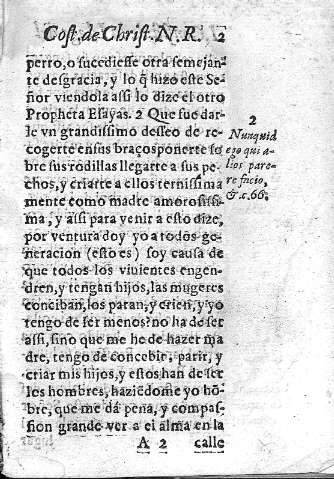 Cost. de Christ. N. R. 2
perro, o sucediesse otra semejan-
te desgracia, y lo q̃ hizo este Se-
ñor viendola assi lo dize el otro
Propheta Esayas. 2 Que fue dar-
le vn grandissimo desseo de re-
cogerte en sus braços ponerte so
bre sus rodillas llegarte a sus pe-
chos, y criarte a ellos ternissima
mente como madre amorosissi-
ma, y assi para venir a esto dize,
por ventura doy yo a todos ge-
neracion (esto es) soy causa de
que todos los viuientes engen-
dren, y tengan hijos, las mugeres
conciban, los paran, y crien, y yo
tengo de ser menos? no ha de ser
assi, sino que me he de hazer ma
dre, tengo de concebir, parir, y
criar mis hijos, y estos han de ser
los hombres, haziẽdome yo hõ-
bre, que me dá pena, y compas-
sion grande ver a el alma en la
A 2 calle
2
Nunquid
ego qui a-
lios pare-
re facio,
&c. 66.